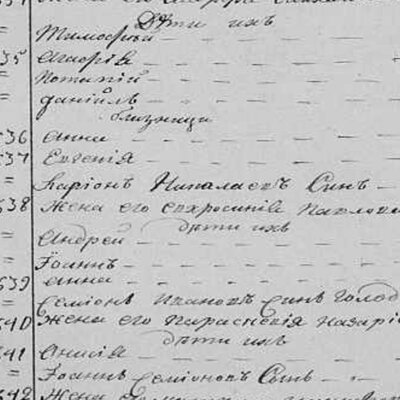 Дѣти ихъ
Тимофѣй
535 Агафія
Потапій
Даніилъ
близнецы
536 Анна
537 Евгенія
Ларіонъ Николаевъ Сынъ
538 Жена его Евхросинія Павлова
дѣти ихъ
Андрей
Іоаннъ
539 Анна
Семіонъ Ивановъ Сынъ Голод
540 Жена его Параскевія Назарі
дѣти ихъ
541 Анисія
Іоаннъ Семіоновъ Сынъ
542 Жена его